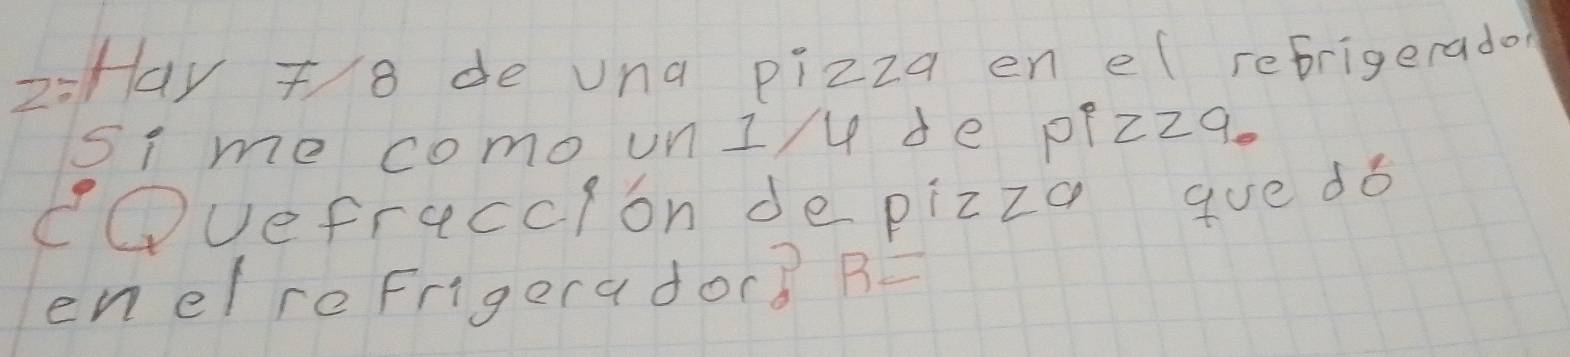 2=Hay 7/8 de una pizza en el refrigerador
Si me como un 1/4 de pizza.
¿Que fracción de pizza quedó
en el refrigerador? R=